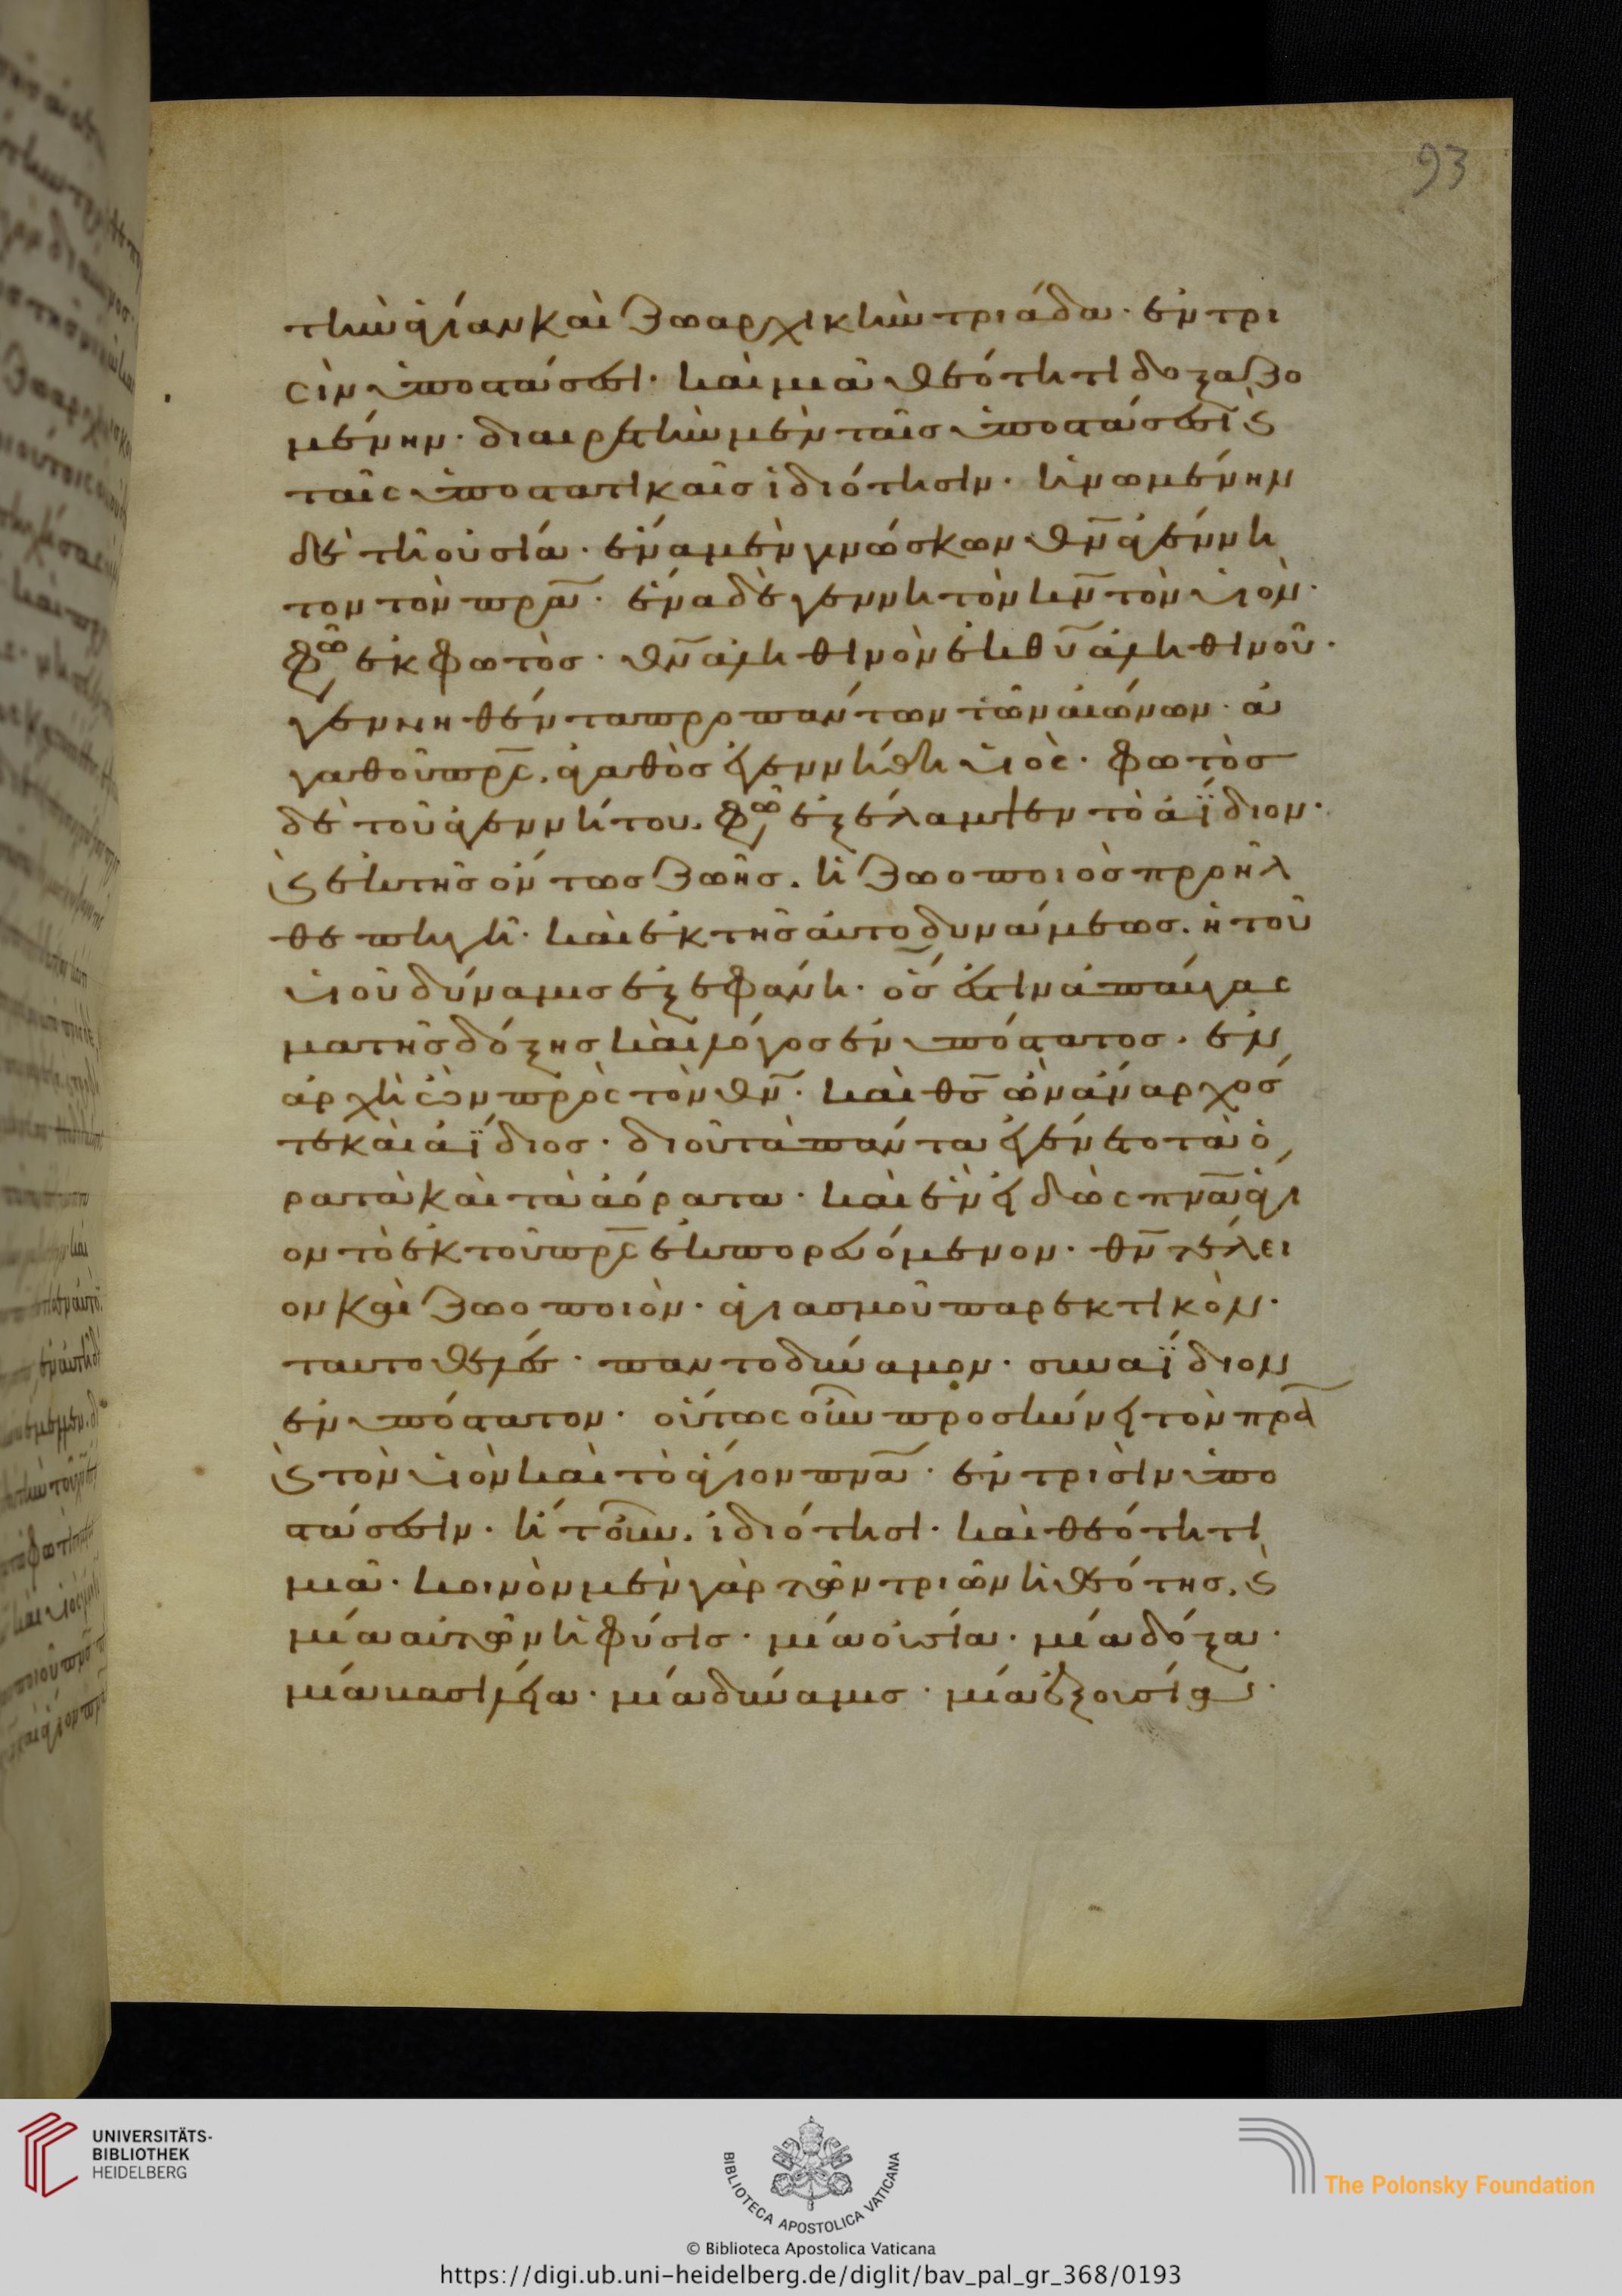 93
τὴν ἁγίαν καὶ ζωαρχικὴν τριάδα · ἐν τρι
σὶν ὑποστάσεσι · καὶ μιᾶ θεότητι δοξαζο
μένην · διαιρετὴν μὲν ταῖσ ὑποστάσεσι ϗ
ταῖς ὑποστατικαῖσ ἰδιότησιν · ἡνωμένην
δὲ τῆ οὐσία · ἕνα μὲν γινώσκων θν̅ ἀγέννη
τον τὸν πρα̅ · ἕνα δὲ γεννητὸν κν̅ τὸν υἱὸν ·
φῶσ ἐκ φωτὸσ · θν̅ ἀληθινὸν ἐκ θυ̅ ἀληθινοῦ ·
γεννηθέντα προ πάντων τῶν αἰώνων · ἀ
γαθοῦ πρς̅ . ἀγαθὸσ ἐγεννήθη υἱὸς · φωτὸσ
δὲ τοῦ ἀγεννήτου . φῶσ ἐξέλαμψεν τὸ ἀΐδιον ·
ϗ ἐκ τῆσ ὄντωσ ζωῆσ . ἡ ζωοποιὸσ προῆλ
θε πηγὴ · καὶ ἐκ τῆσ αὐτοδυνάμεωσ . ἡ τοῦ
υἱοῦ δύναμισ ἐξεφάνη · ὅσ ἐστιν ἀπαύγασ
μα τῆσ δόξησ καὶ λόγοσ ἐνυπόστατοσ · ἐν
ἀρχῆ ὢν πρὸς τὸν θν̅ · καὶ θσ̅ ὢν ἄναρχοσ
τε καὶ ἀΐδιοσ · δι οὗ τὰ πάντα ἐγένετο τὰ ὁ
ρατὰ καὶ τὰ ἀόρατα · καὶ ἓν εἰδὼς πνα̅ ἅγι
ον τὸ ἐκ τοῦ πρς̅ ἐκπορευόμενον · θν̅ τέλει
ον καὶ ζωοποιὸν · ἁγιασμοῦ παρεκτικὸν ·
ταυτοθελὲσ · παντοδύναμον · συναΐδιον
ἐνυπόστατον · οὕτως οὖν προσκύνει τὸν πρα̅
ϗ τὸν υἱὸν καὶ τὸ ἅγιον πνα̅ · ἐν τρισὶν ὑπο
στάσεσιν · ἤτουν . ἰδιότησι · καὶ θεότητι
μιᾶ · κοινὸν μὲν γὰρ τῶν τριῶν ἡ θεότησ . ϗ
μία αὐτῶν ἡ φύσισ · μία οὐσία · μία δόξα ·
μία βασιλεία · μία δύναμισ · μία ἐξουσία ·
UNIVERSITÄTS-
BIBLIOTHEK
HEIDELBERG
BIBLIOTECA APOSTOLICA VATICANA
The Polonsky Foundation
© Biblioteca Apostolica Vaticana
https://digi.ub.uni-heidelberg.de/diglit/bav_pal_gr_368/0193